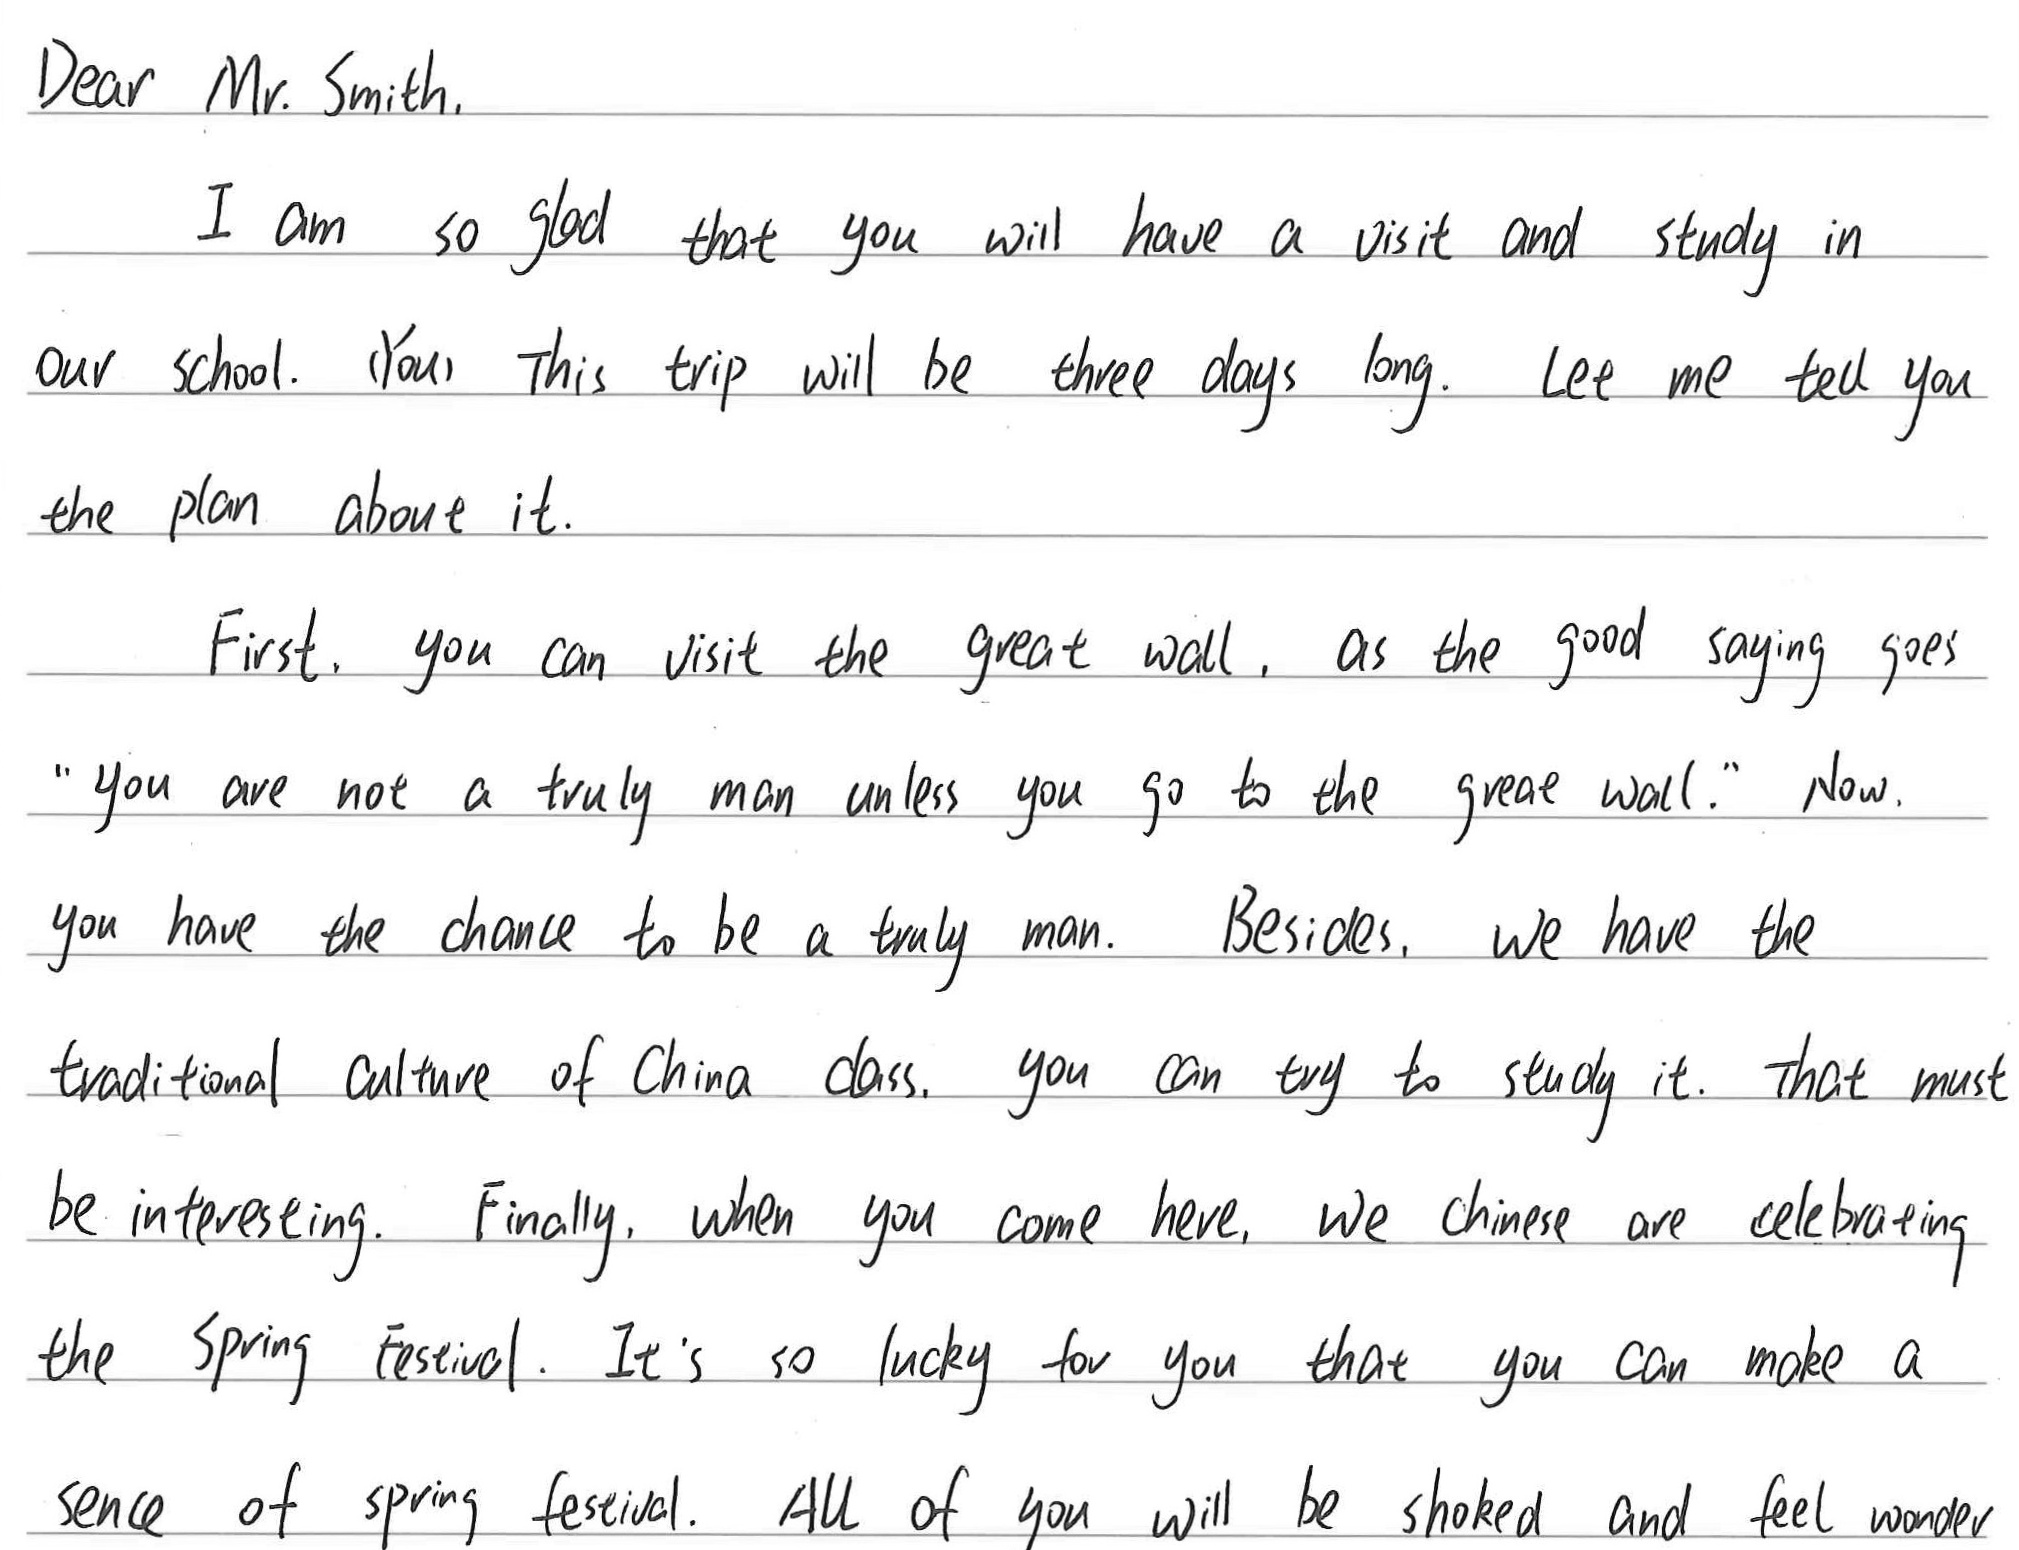 Dear Mr. Smith,
I am so glad that you will have a visit and study in
our school. (You) This trip will be three days long. Let me tell you
the plan about it.
First, you can visit the great wall, as the good saying goes
"you are not a truly man unless you go to the great wall." Now,
you have the chance to be a truly man. Besides, we have the
traditional culture of China class, you can try to study it. That must
be interesting. Finally, when you come here, we Chinese are celebrating
the Spring Festival. It's so lucky for you that you can make a
sence of spring festival. All of you will be shoked and feel wonder